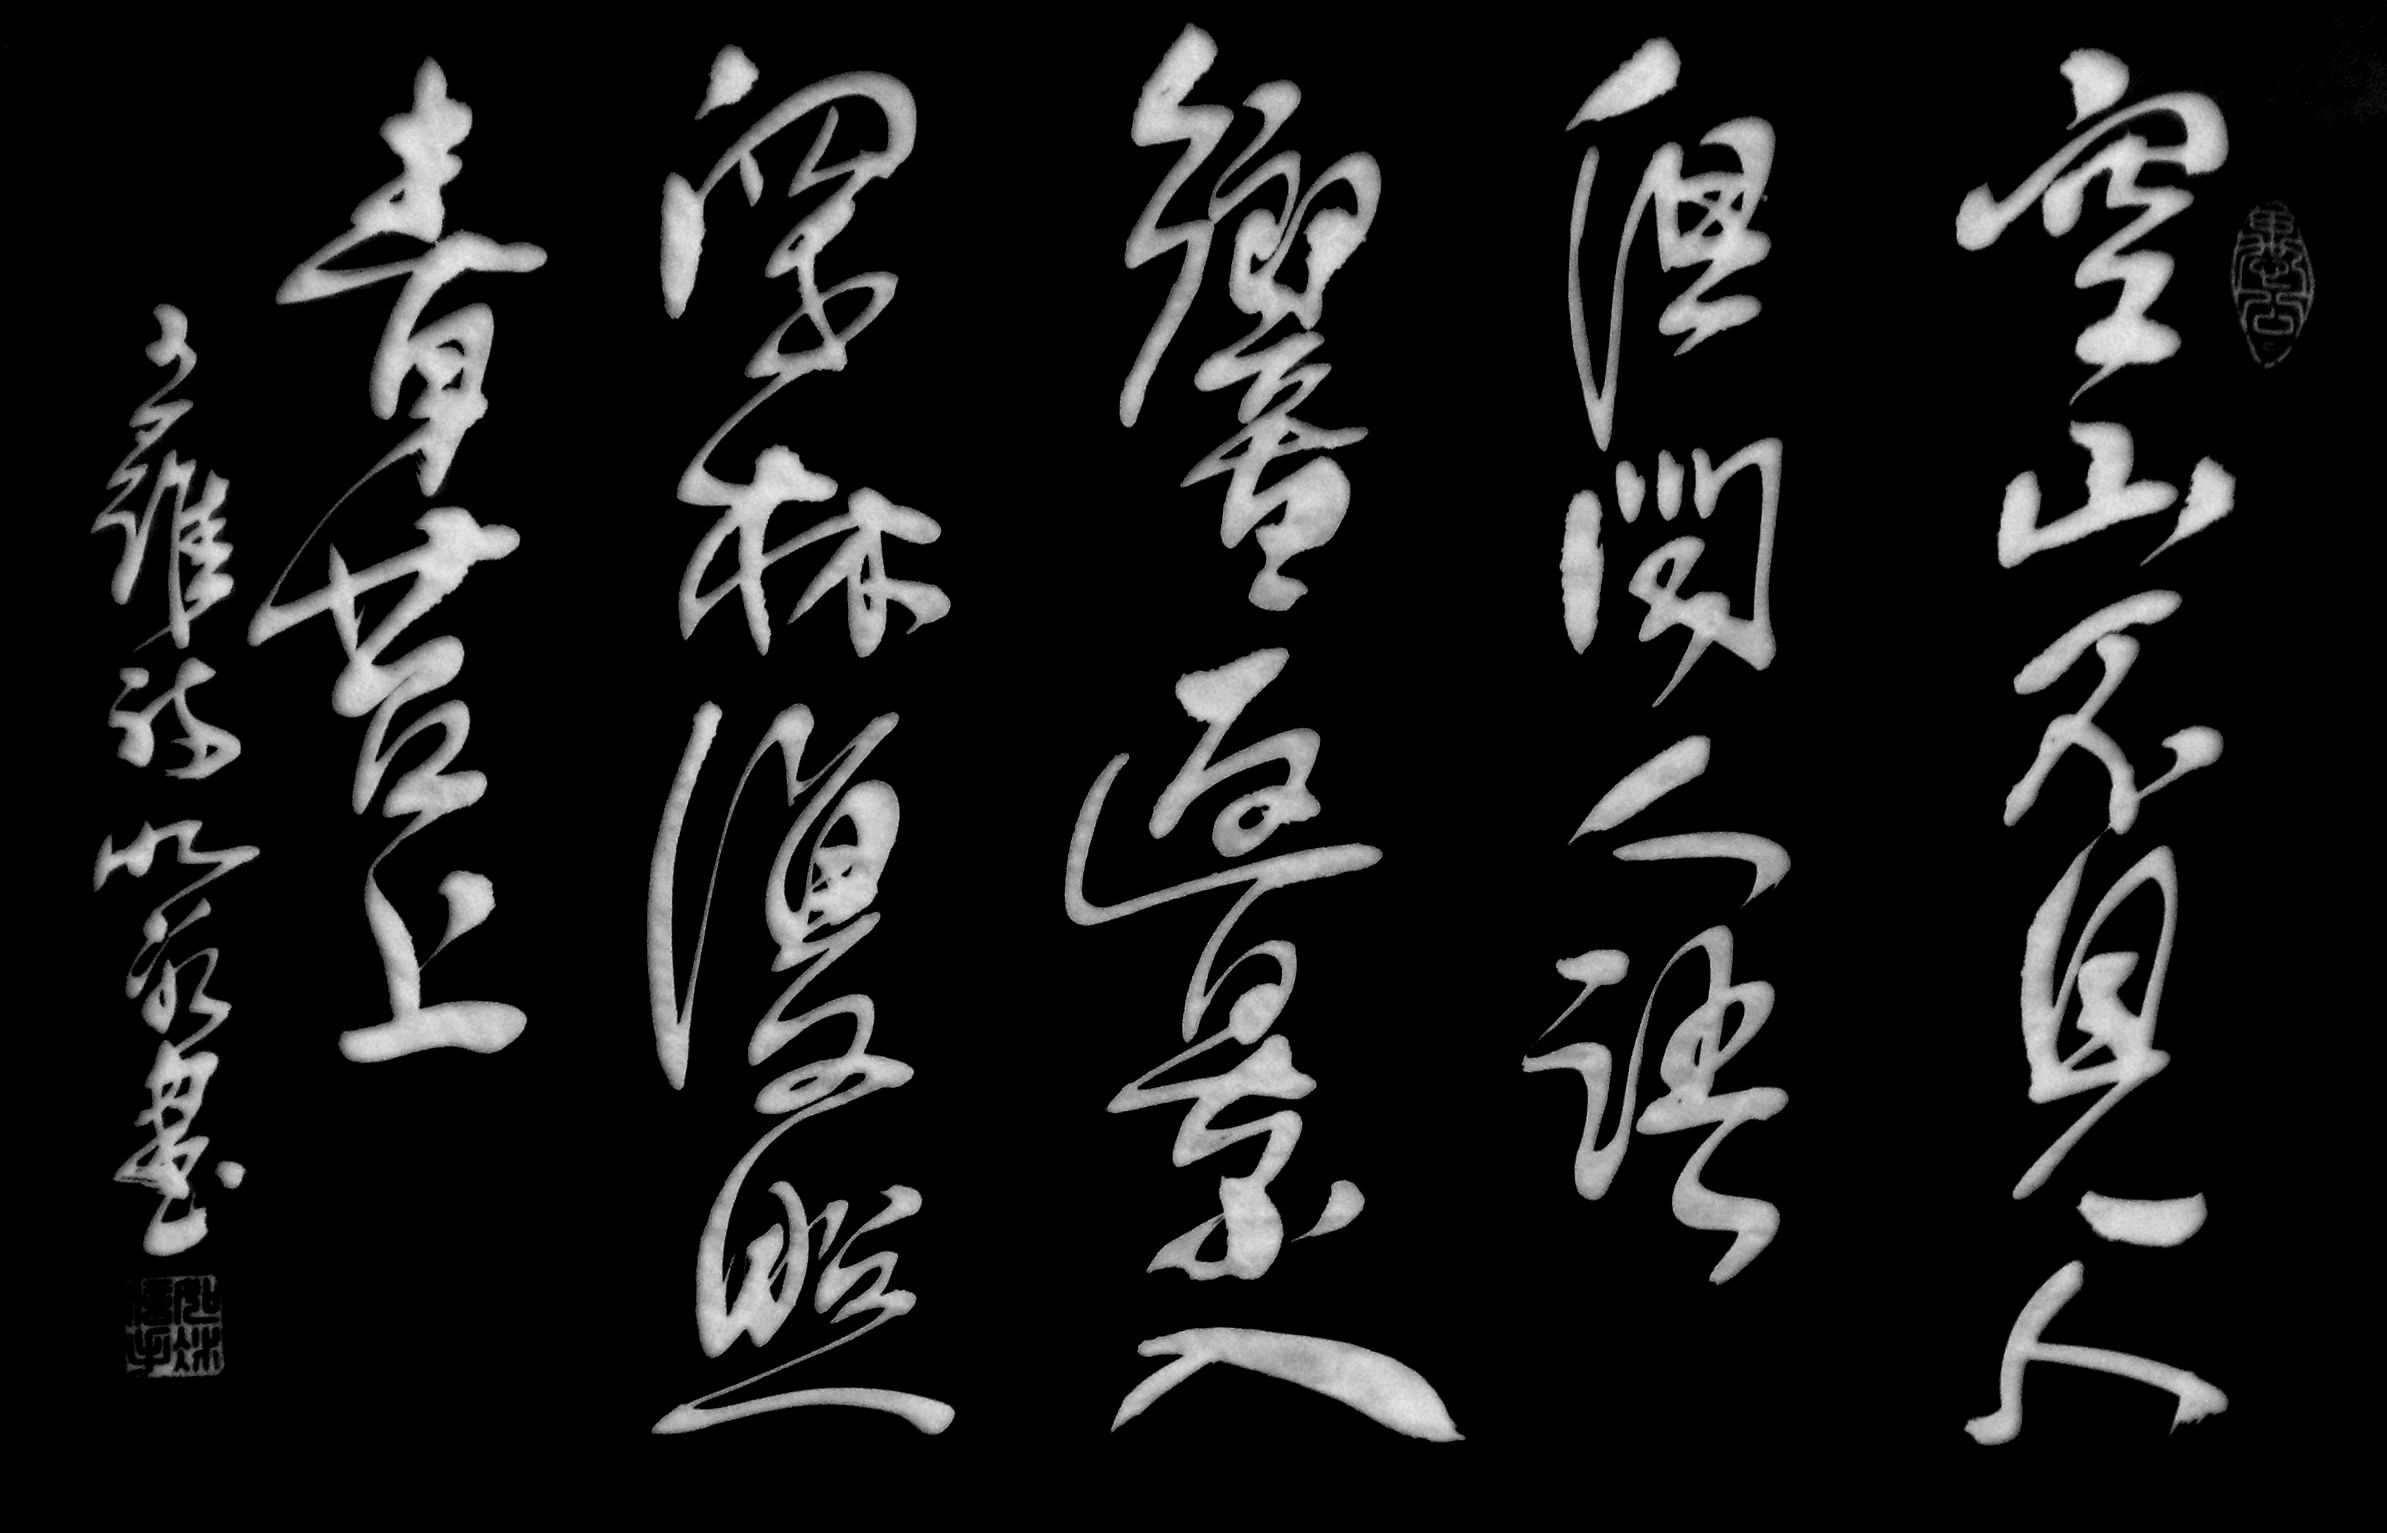 空山不見人
但聞人語
響返景入
深林復照
青苔上
王維詩